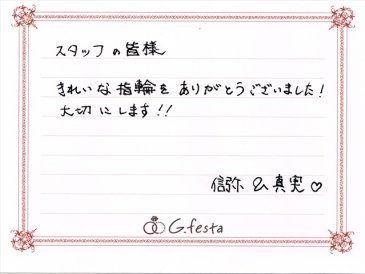 スタッフの皆様
きれいな指輪を ありがとうございました!
大切にします!!
信弥 & 真実♡
G.festa